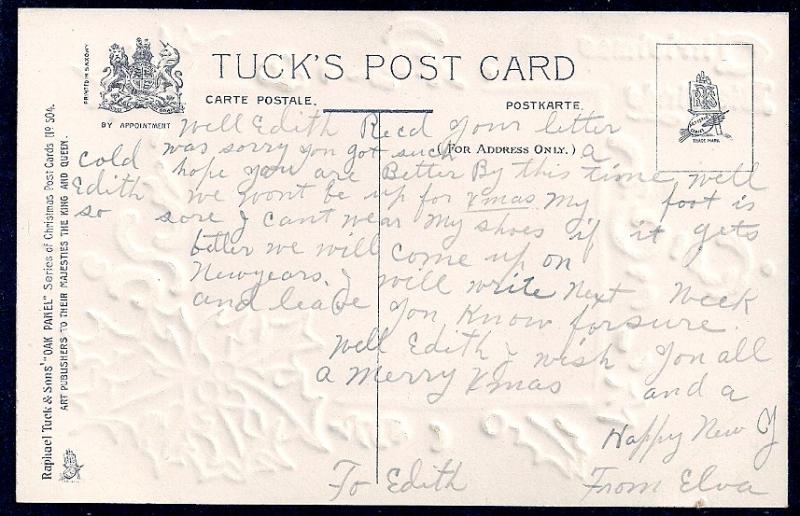 TUCK'S POST CARD
CARTE POSTALE.
POSTKARTE.
BY APPOINTMENT
(FOR ADDRESS ONLY.)
PRINTED IN SAXONY.
TRADE MARK.
Raphael Tuck & Sons' "OAK PANEL" Series of Christmas Post Cards Nº 504.
ART PUBLISHERS TO THEIR MAJESTIES THE KING AND QUEEN.
Well Edith Recd your letter
was sorry you got such a
cold hope you are Better By this time well
Edith we wont be up for Xmas My foot is
so sore I cant wear My shoes if it gets
better we will come up on
Newyears. I will write Next Week
and leave you Know forsure.
Well Edith I wish you all
a Merry Xmas and a
Happy New Y
To Edith From Elva